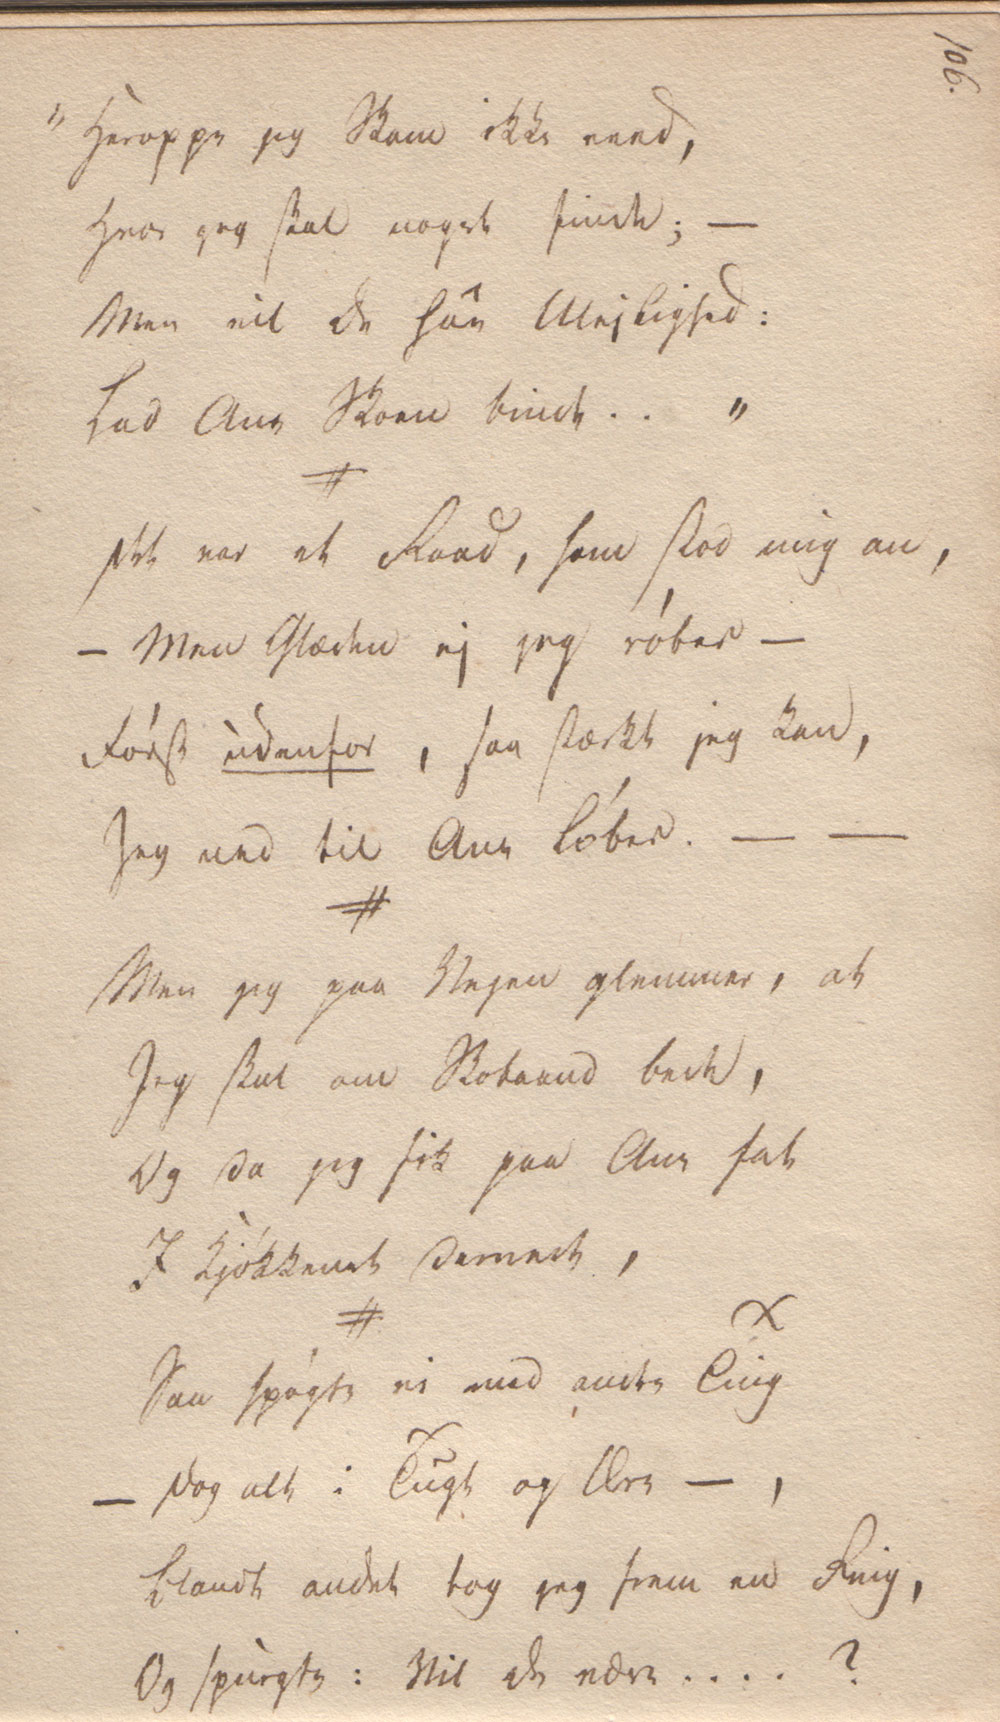 106.
" Heroppe jeg Skam ikke veed,
Hvor jeg skal noget finde; —
Men vil De hâe Ulejlighed:
Lad Ane Skoen binde . . "
Det var et Raad, som stod mig an,
— Men Glæden ej jeg røber —
Først udenfor, saa stærkt jeg kan,
Jeg ned til Ane løber. — —
Men jeg paa Vejen glemmer, at
Jeg skal om Skobaand bede,
Og da jeg fik paa Ane fat
I Kjøkkenet dernede,
Saa spøgte vi med andre Ting
— Dog alt i Tugt og Ære —,
Blandt andet tog jeg frem en Ring,
Og spurgte: Vil De være . . . . ?